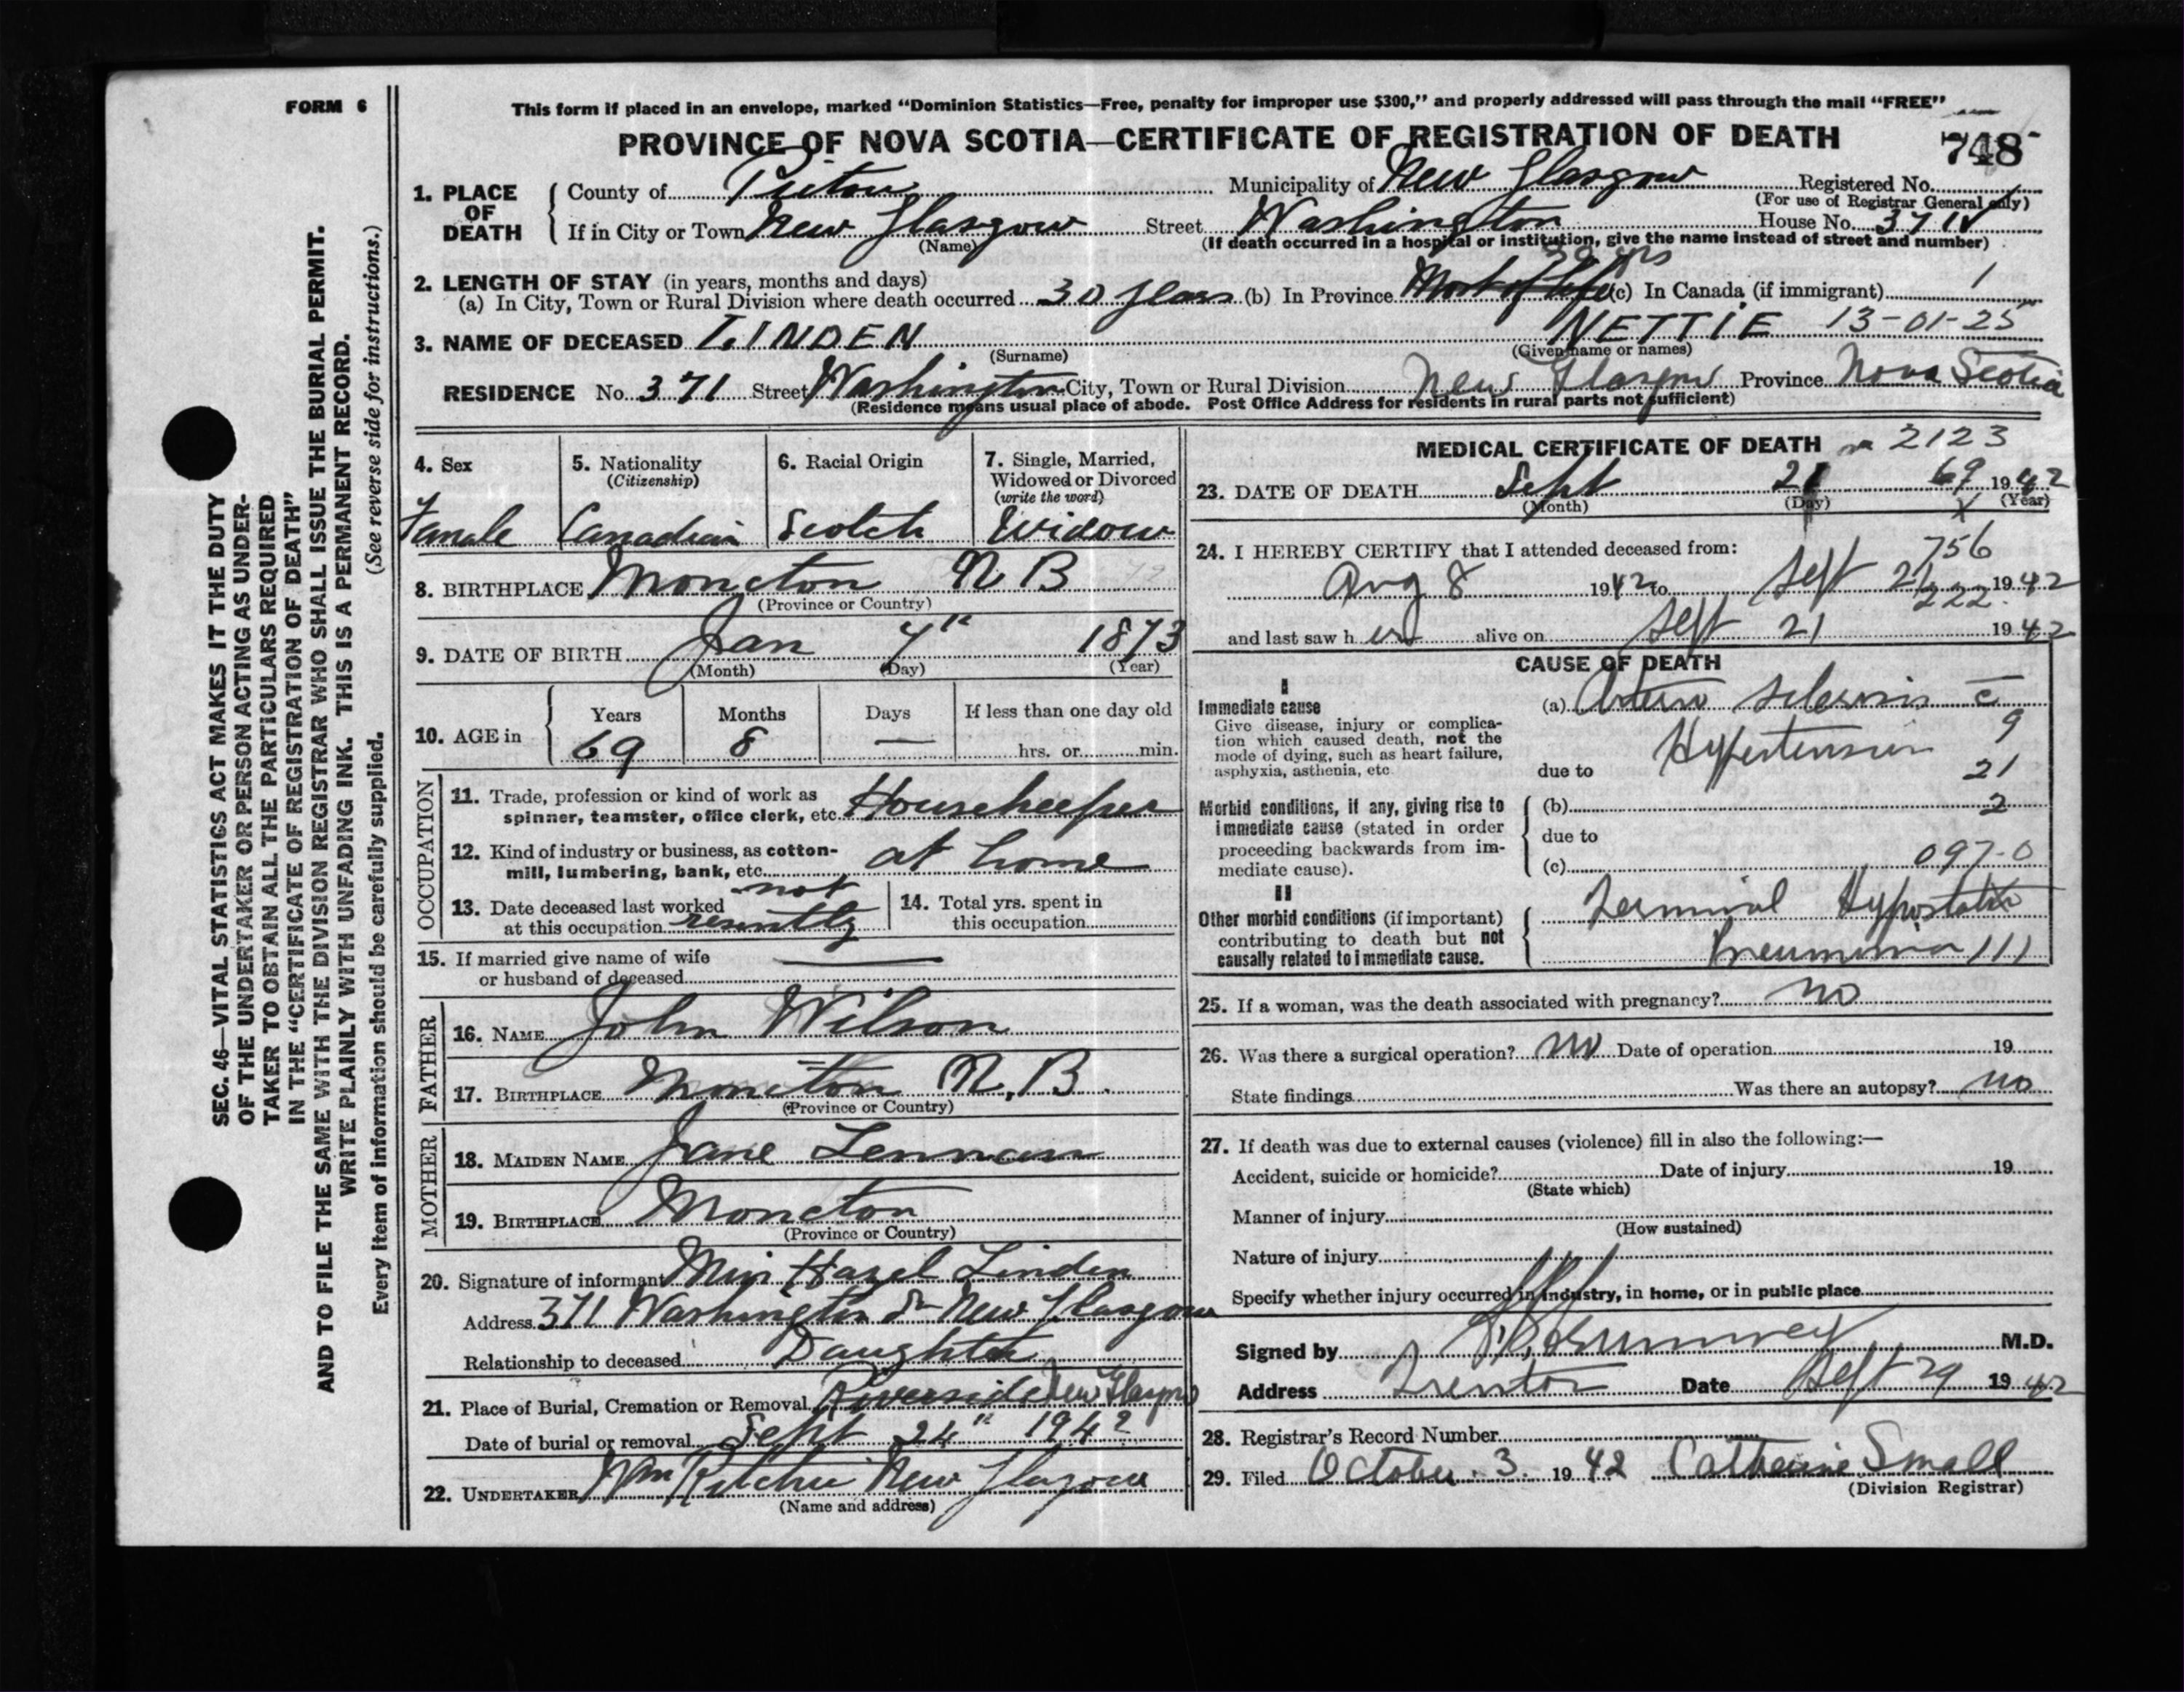 FORM 6
This form if placed in an envelope, marked “Dominion Statistics—Free, penalty for improper use $300,” and properly addressed will pass through the mail “FREE”
PROVINCE OF NOVA SCOTIA—CERTIFICATE OF REGISTRATION OF DEATH
748
1. PLACE OF DEATH County of Pictou Municipality of New Glasgow Registered No.
(For use of Registrar General only)
If in City or Town New Glasgow Street Washington House No. 371
(Name) (If death occurred in a hospital or institution, give the name instead of street and number)
30 yrs
2. LENGTH OF STAY (in years, months and days)
(a) In City, Town or Rural Division where death occurred 30 years (b) In Province Most of life (c) In Canada (if immigrant) 1
3. NAME OF DECEASED LINDEN NETTIE 13-01-25
(Surname) (Given name or names)
RESIDENCE No. 371 Street Washington City, Town or Rural Division New Glasgow Province Nova Scotia
(Residence means usual place of abode. Post Office Address for residents in rural parts not sufficient)
4. Sex 5. Nationality (Citizenship) 6. Racial Origin 7. Single, Married, Widowed or Divorced (write the word)
Female Canadian Scotch Widow
8. BIRTHPLACE Moncton N B
(Province or Country)
9. DATE OF BIRTH Jan 7" 1873
(Month) (Day) (Year)
10. AGE in Years Months Days If less than one day old
69 8 — hrs. or min.
OCCUPATION
11. Trade, profession or kind of work as spinner, teamster, office clerk, etc. Housekeeper
12. Kind of industry or business, as cotton-mill, lumbering, bank, etc. at home
13. Date deceased last worked at this occupation not recently
14. Total yrs. spent in this occupation
15. If married give name of wife or husband of deceased —
FATHER
16. NAME John Wilson
17. BIRTHPLACE Moncton N.B.
(Province or Country)
MOTHER
18. MAIDEN NAME Jane
19. BIRTHPLACE Moncton
(Province or Country)
20. Signature of informant Miss Hazel Linden
Address 371 Washington St New Glasgow
Relationship to deceased Daughter
21. Place of Burial, Cremation or Removal Riverside New Glasgow
Date of burial or removal Sept 24" 1942
22. UNDERTAKER Wm Ritchie New Glasgow
(Name and address)
MEDICAL CERTIFICATE OF DEATH 2123
23. DATE OF DEATH Sept 21 69 1942
(Month) (Day) (Year)
24. I HEREBY CERTIFY that I attended deceased from:
756
Aug 8 1942 to Sept 21 1942
222
and last saw her alive on Sept 21 1942
CAUSE OF DEATH
I
Immediate cause
Give disease, injury or complication which caused death, not the mode of dying, such as heart failure, asphyxia, asthenia, etc
(a) Arterio sclerosis c̄
9
due to Hypertension
21
Morbid conditions, if any, giving rise to immediate cause (stated in order proceeding backwards from immediate cause).
(b) 2
due to
(c) 097-0
II
Other morbid conditions (if important) contributing to death but not causally related to immediate cause.
Terminal Hypostatic
Pneumonia 111
25. If a woman, was the death associated with pregnancy? no
26. Was there a surgical operation? no Date of operation 19
State findings Was there an autopsy? no
27. If death was due to external causes (violence) fill in also the following:—
Accident, suicide or homicide? Date of injury 19
(State which)
Manner of injury
(How sustained)
Nature of injury
Specify whether injury occurred in industry, in home, or in public place
Signed by M.D.
Address Trenton Date Sept 29 1942
28. Registrar's Record Number
29. Filed October 3 1942 Catherine Small
(Division Registrar)
SEC. 46—VITAL STATISTICS ACT MAKES IT THE DUTY
OF THE UNDERTAKER OR PERSON ACTING AS UNDER-
TAKER TO OBTAIN ALL THE PARTICULARS REQUIRED
IN THE “CERTIFICATE OF REGISTRATION OF DEATH”
AND TO FILE THE SAME WITH THE DIVISION REGISTRAR WHO SHALL ISSUE THE BURIAL PERMIT.
WRITE PLAINLY WITH UNFADING INK. THIS IS A PERMANENT RECORD.
Every item of information should be carefully supplied. (See reverse side for instructions.)